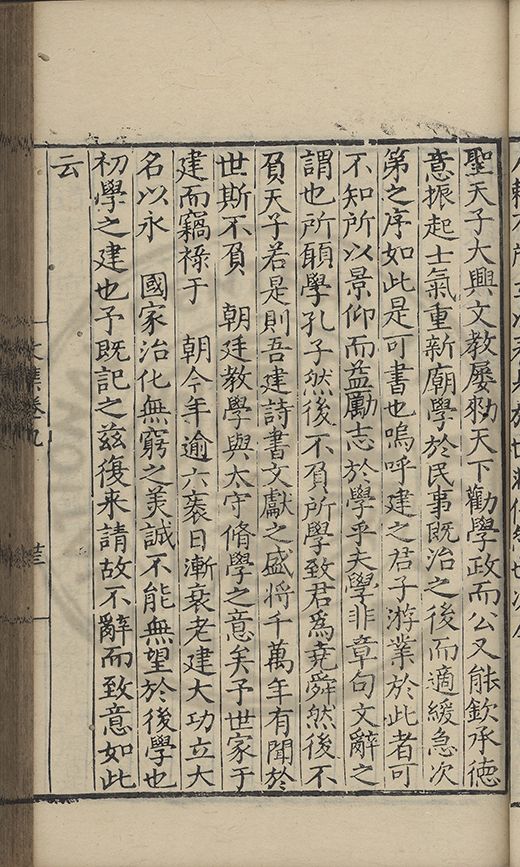 聖天子大興文教屡勑天下勸學政而公又能欽承德
意振起士氣重新廟學於民事既治之後而適緩急次
第之序如此是可書也嗚呼建之君子游業於此者可
不知所以景仰而益勵志於學乎夫學非章句文辭之
謂也所願學孔子然後不負所學致君為堯舜然後不
負天子若是則吾建詩書文獻之盛将千萬年有聞於
世斯不負　朝廷教學與太守脩學之意矣予世家于
建而竊祿于　朝今年逾六袠日漸衰老建大功立大
名以永　國家治化無窮之美誠不能無望於後學也
初學之建也予既記之兹復来請故不辭而致意如此
云
文集卷九